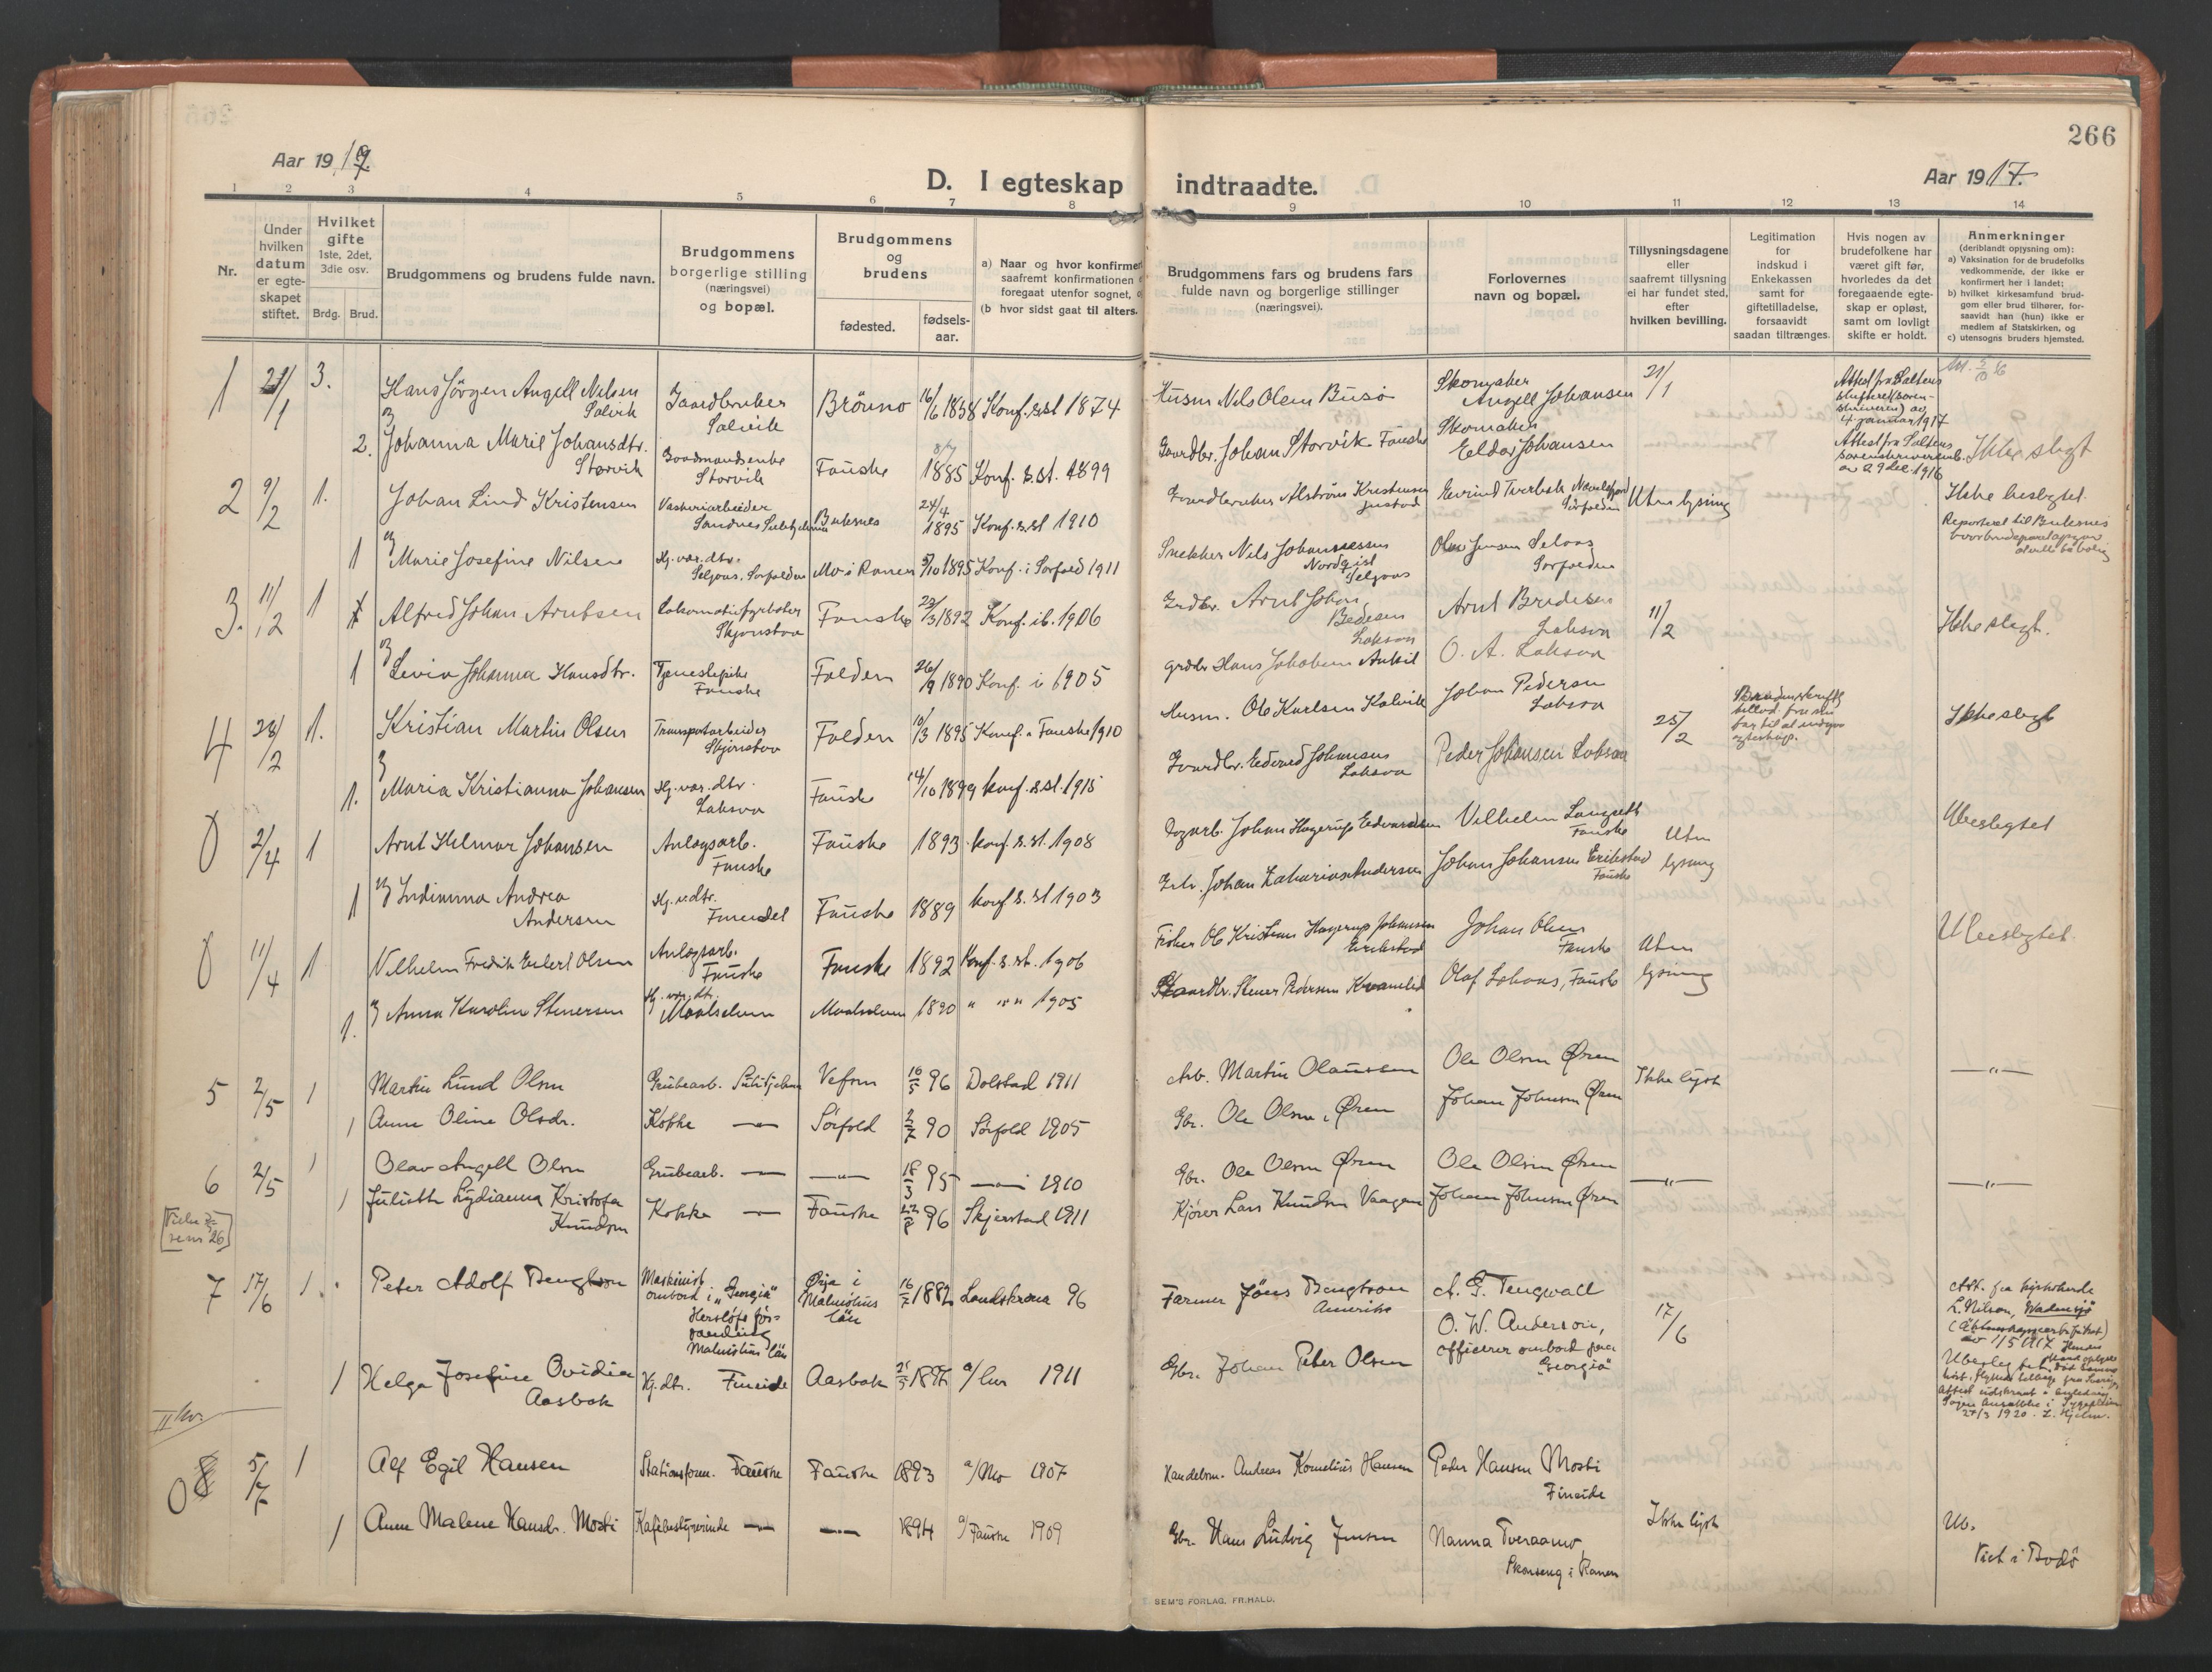 266
Aar 1917.
Aar 1917.
D. I egteskap indtraadte.
1 2 3 4 5 6 7 8 9 10 11 12 13 14
Nr.
Under hvilken datum er egteskapet stiftet.
Hvilket gifte
1ste, 2det, 3die osv.
Brdg. Brud.
Brudgommens og brudens fulde navn.
Brudgommens borgerlige stilling (næringsvei) og bopæl.
Brudgommens og brudens
fødested.
fødsels-aar.
a) Naar og hvor konfirmer
saafremt konfirmationen
foregaat utenfor sognet,
(b hvor sidst gaat til alters.
Brudgommens fars og brudens fars
fulde navn og borgerlige stillinger
(næringsvei).
Forlovernes
navn og bopæl.
Tillysningsdagene
eller
saafremt tillysning
ei har fundet sted,
efter
hvilken bevilling.
Legitimation
for
indskud i
Enkekassen
samt for
giftetilladelse,
forsaavidt
saadan tiltrænges.
Hvis nogen av
brudefolkene har
været gift før,
hvorledes da det
foregaaende egte-
skap er opløst,
samt om lovligt
skifte er holdt.
Anmerkninger
(deriblandt opysning om):
a) Vaksination for de brudefolks
vedkommende, der ikke er
konfirmert her i landet;
b) hvilket kirkesamfund brud-
gom eller brud tilhører, for-
saavidt han (hun) ikke er
medlem af Statskirken, og
c) utensogns bruders hjemsted.
1 21/1 3. Hans Jörgen Angell Nilsen Solvik Gaardbruker Solvik Brönnö 16/6 1858 Konf. s.st 1874 Husm Nils Olsen Busö Skomaker Angell Johansen 21/1 Attest fra Saltens skifteret (sorenskriveren) av 4 januar 1917
2. Johanna Marie Johansdtr. Storvik Gaardmandsenke Storvik Fauske 8/7 1885 Konf. s.st. 1899 Gaardbr. Johan Storvik Fauske Skomaker Eldor Johansen Attest fra Saltens sorenskriveremb. av 29 dec. 1916 Ikke slegt
2 9/2 1. Johan Lind Kristensen Vaskeriarbeider Sandnes Sulitjelma Buksnes 24/4 1895 Konf. s.st 1910 Gaardbruker Alström Kristensen Eivind Tverbak Sörfolden Uten lysning Ikke beslegtet.
1 Marie Josefine Nilsen Hj.vær.dtr. Seljaas, Sorfolden Mo i Ranen 5/10 1895 Konf. i Sorfold 1911 Snekker Nils Johannessen Nordqist Seljaas Olav Jensen Seljaas Sorfolden
3. 11/2 1 Alfred Johan Arntsen Lokomotivfyrböter Skjönstaa Fauske 22/3 1892 Konf. ib. 1906 Grdbr. Arnt Johan Bredesen Laksaa Arnt Bredesen Laksaa 11/2 Ikke slegt.
1 Levin Johanna Hansdtr. Tjenestepike Fauske Folden 26/9 1890 Konf. i 1905 grdbr Hans Jakobsen O. A. Laksaa
4 28/2 1. Kristian Martin Olsen Transportarbeider Skjönstaa Folden 10/3 1895 Konf. i Fauske 1910 Husm. Ole Karlsen Kalvik Johan Pedersen Laksaa 25/2 Ikke slegt
1. Maria Kristianna Johansen Hj.vær.dtr. Laksaa Fauske 14/10 1899 konf. s.st. 1915 Gaardbr. Edvard Johansen Laksaa Peder Johansen Laksaa
0 2/4 1 Arnt Hilmar Johansen Anlægsarb. Fauske Fauske 1893 konf. s.st. 1908 Dagarb. Johan Hagerup Edvardsen Vilhelm Langseth Fauske Uten lysning Ubeslegtet
1 Indianna Andrea Andersen Hj.v.dtr. Fauske 1889 konf s.st 1903 Grb. Johan Zakarias Andersen Johan Johansen Erikstad Fauske
0 11/4 1 Vilhelm Fredrik Eilert Olsen Anlægsarb. Fauske Fauske 1892 Konf. s.st. 1906 Fisker Ole Kristians Hagerup Johansen Erikstad Johan Olsen Fauske Uten lysning Ubeslegtet.
1. Anna Karoline Stenersen Hj. vær. dtr. Maalselven Maalselven 1890 " " " 1905 Gaardbr. Stener Pedersen Olaf Johans, Fauske
5 2/5 1 Martin Lund Olsen Grubearb. Sulitjelma Vefsn 16/5 96 Dolstad 1911 Arb. Martin Olaussen Ole Olsen Øren Ikke lyst —"—
1 Anne Oline Olsdr. Kokke —"— Sørfold 2/7 90 Sørfold 1905 Gbr. Ole Olsen, Øren Johan Johnsen Øren
6 2/5 1 Olav Angell Olsen Grubearb. —"— —"— 18/3 95 —"— 1910 Gbr. Ole Olsen Øren Ole Olsen Øren —"— —"—
1 Juliette Lydianna Kristofa Knudsen Kokke —"— Fauske 22/8 96 Skjerstad 1911 Kjører Lars Knudsen Vaagan Johan Johnsen Øren
7 17/6 1. Peter Adolf Bengtson Maskinist ombord i "Georgia" Malmöhus län Malmöhus län 16/7 1882 Landskrona 96 Farmer Jöns Bengtson Amerika A. G. Tengwall O. W. Anderson, officerer ombord paa "Georgia" 17/6 Att. fra kyrkoherde L. Nilson, Wadensjö
1 Helga Josefine Ovidia Aasbak Hj.dtr. Fineide Aasbak 1897 1911 Gbr. Johan Peter Olsen 27/3 1920. L. Hjelm.
II kv.
0 8 5/7 1 Alf Egil Hansen Stationsform. Fauske Fauske 1893 a/Mo 1907 Handelsm. Andreas Kornelius Hansen Peder Hansen Mosti Fineide Ikke lyst Ub. Viet i Bodö
1 Anne Malene Hansdr. Mosti Kafebestyrerinde —"— —"— 1894 a/Fauske 1909 Gbr. Hans Ludvig Jensen Nanna Tveraamo, Skonseng i Ranen
SEM'S FORLAG, FR.HALD.